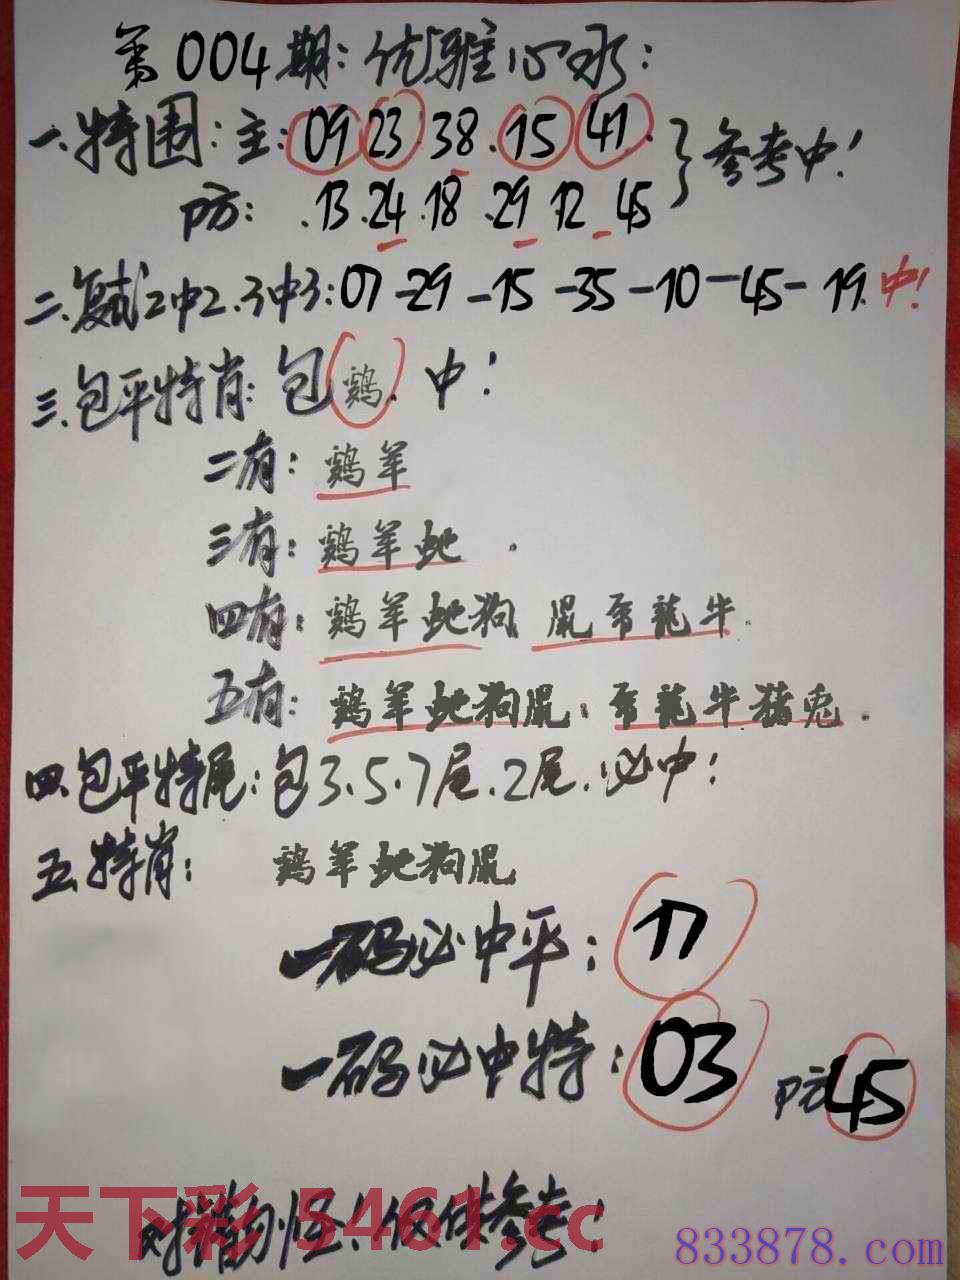 第004期:优雅心水:
一.特围:主:09 23 38.15 41.
防:.13.24.18.29 12 45 }参考中!
二.复式2中2.3中3:07-29-15-35-10-45-19.中!
三.包平特肖:包鸡.中!
二有:鸡羊
三有:鸡羊虵.
四有:鸡羊虵狗 鼠虎龍牛.
五有:鸡羊虵狗鼠.虎龍牛猪兔.
四.包平特尾:包3.5.7尾.2尾.必中!
五.特肖:鸡羊虵狗鼠
一码必中平:17
一码必中特:03 防45
天下彩 5461.cc
错勿怪!仅供参考!
833878.com